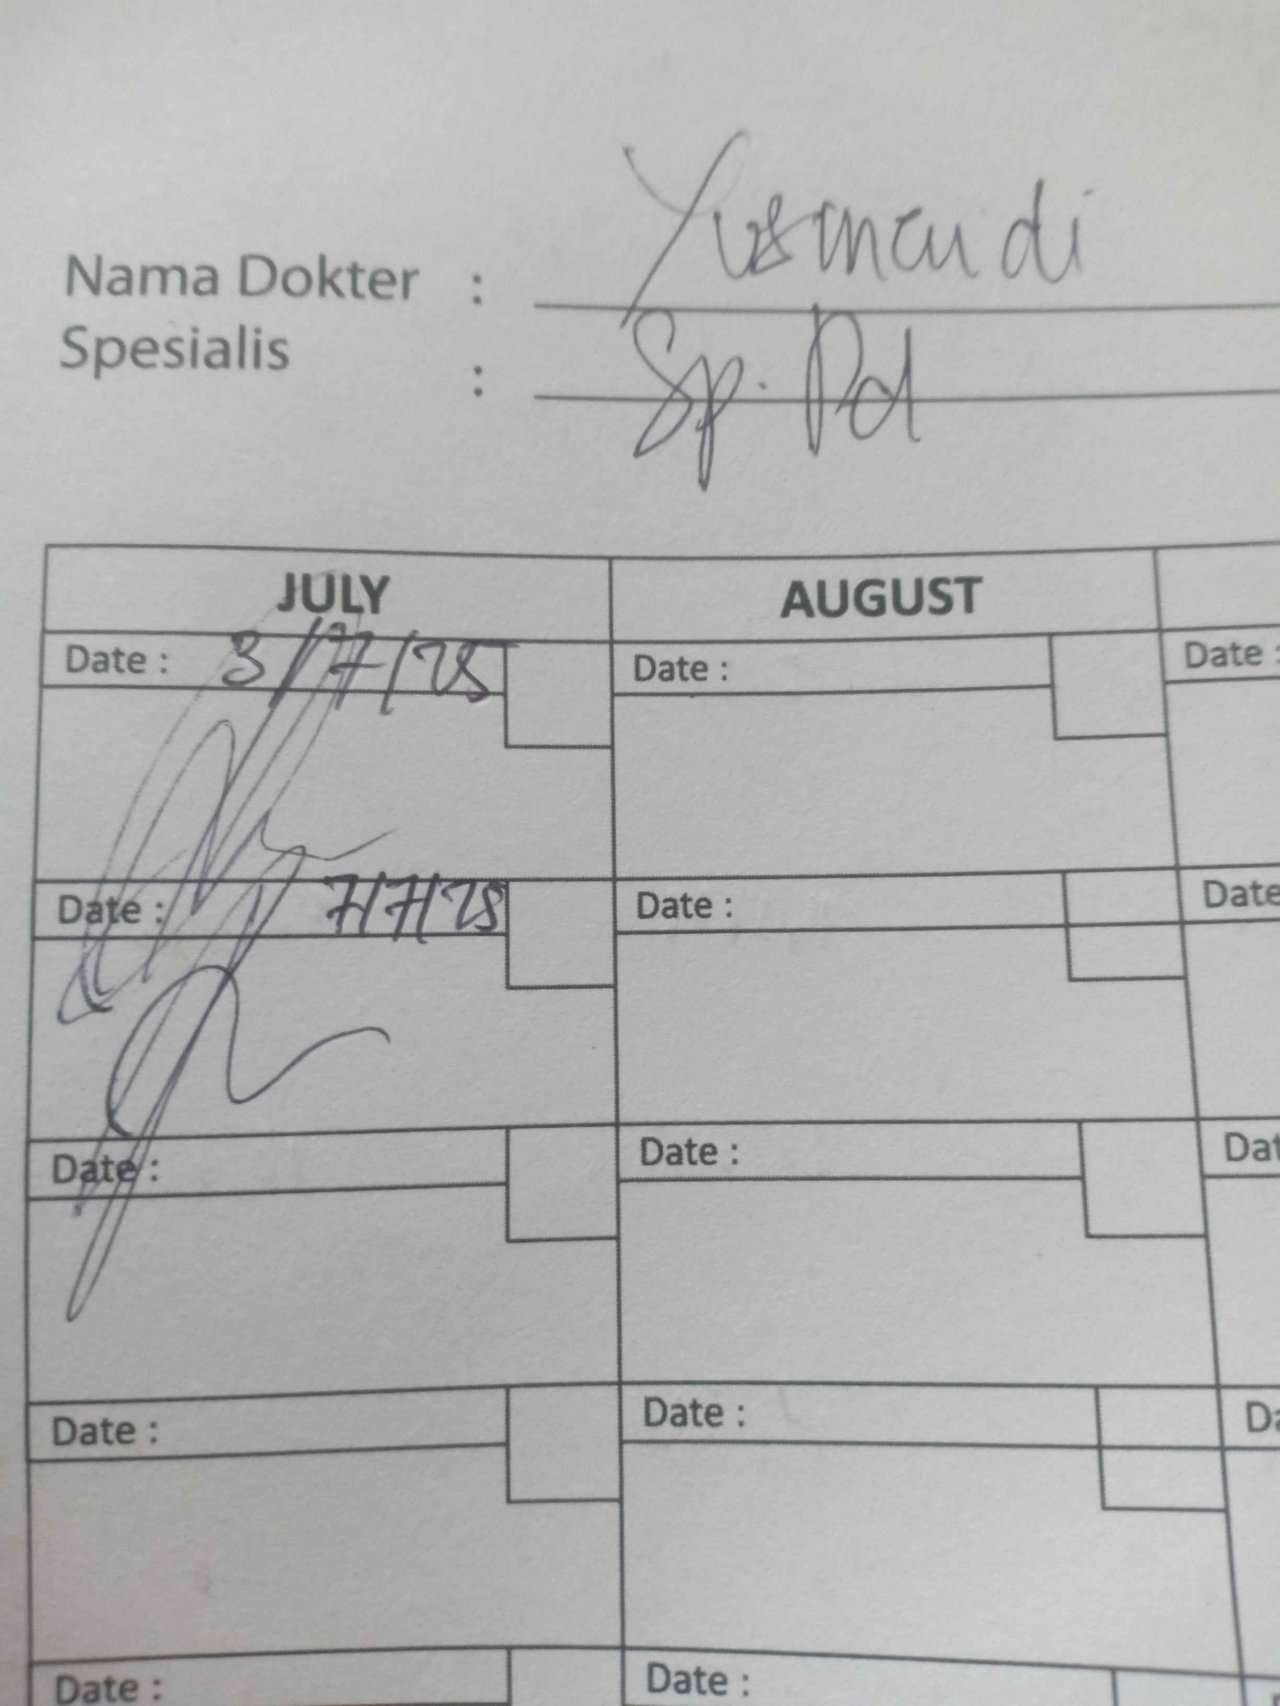 Nama Dokter : Yusmaidi
Spesialis : Sp. Pd
JULY AUGUST
Date : 3/7/25 Date : Date :
Date : 7/7/25 Date : Date
Date : Date : Dat
Date : Date : Da
Date : Date :